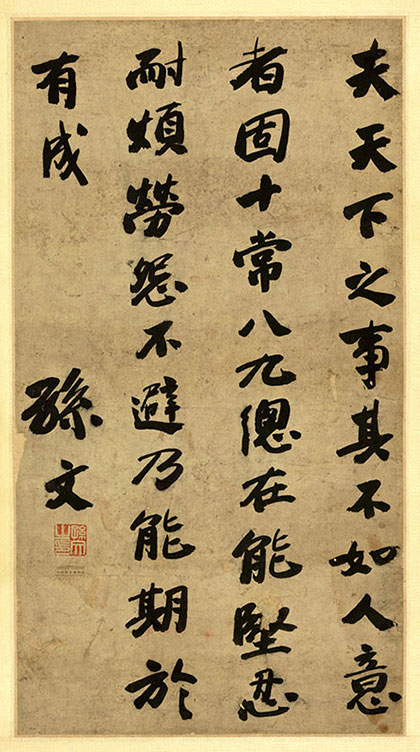 夫天下之事其不如人意
者固十常八九總在能堅忍
耐煩勞怨不避乃能期於
有成
孫文
孫文之印